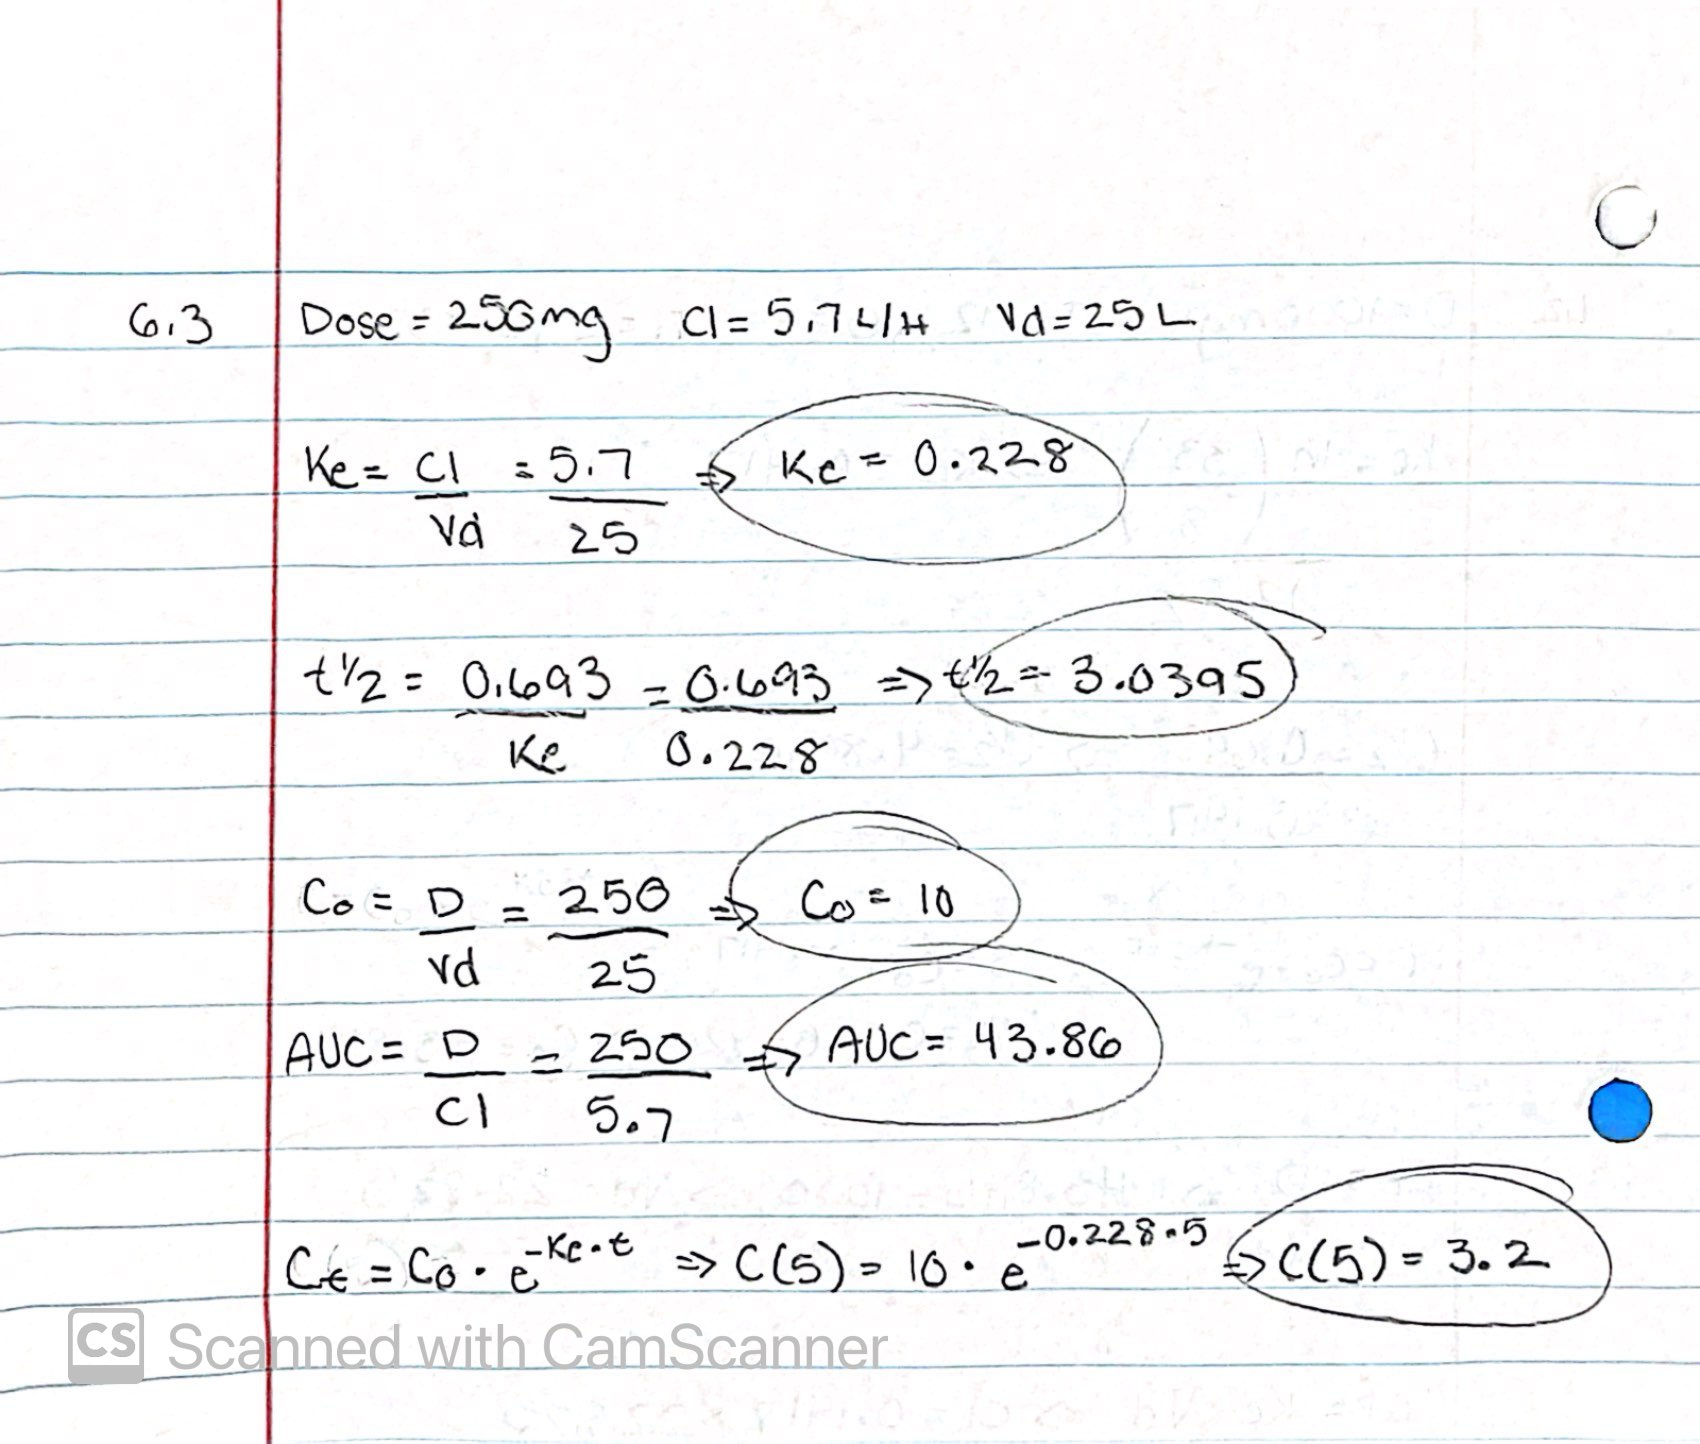 6.3 Dose = 250mg Cl = 5.7 L/H Vd = 25 L
Ke = Cl/Vd = 5.7/25 => Ke = 0.228
t1/2 = 0.693/Ke = 0.693/0.228 => t1/2 = 3.0395
Co = D/Vd = 250/25 => Co = 10
AUC = D/Cl = 250/5.7 => AUC = 43.86
Ct = Co · e^-Ke·t => C(5) = 10 · e^-0.228·5 => C(5) = 3.2
CS Scanned with CamScanner